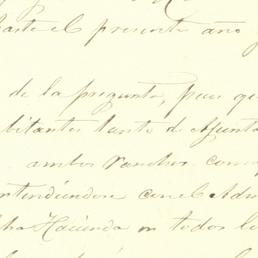 hasta el presente año
de la pregunta, pues que
bitantes tanto de
ambos ranchos como
ntendiéndose con el Adm
cha Hacienda en todos lo